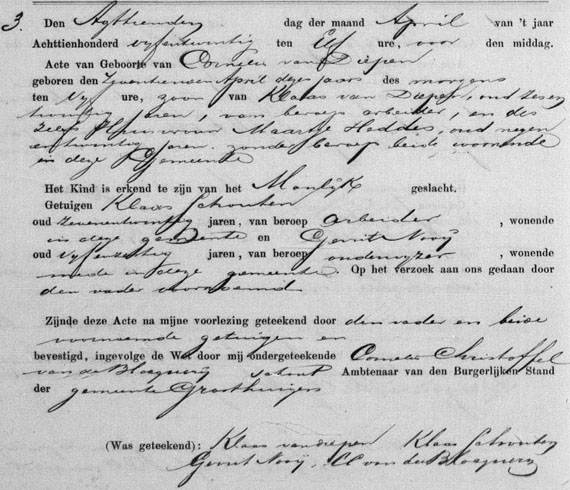 3. Den Agttienden dag der maand April van 't jaar
Achttienhonderd vyfentwintig ten Elf ure, voor den middag.
Acte van Geboorte van Cornelis van Diepen
geboren den Zeventienden April dezes jaars des morgens
ten Vyf ure, zoon van Klaas van Diepen, oud zesen
twintig jaren, van beroep arbeider, en des
zelfs Huisvrouw Maartje Heddes, oud negen
entwintig jaren zonder beroep beide woonende
in deze Gemeente
Het Kind is erkend te zijn van het Manlijk geslacht.
Getuigen Klaas Schouten
oud Zevenentwintig jaren, van beroep arbeider, wonende
in deze gemeente en Gerrit Nooij
oud Vyfenzestig jaren, van beroep onderwyzer, wonende
mede in deze gemeente. Op het verzoek aan ons gedaan door
den vader voornoemd
Zijnde deze Acte na mijne voorlezing geteekend door den vader en beide
voornoemde getuigen en
bevestigd, ingevolge de Wet door mij ondergeteekende Cornelis Christoffel
van de Blocquery schout Ambtenaar van den Burgerlijken Stand
der gemeente Grosthuizen
(Was geteekend): Klaas van diepen Klaas Schouten
Gerrit Nooij, CC van de Blocquery